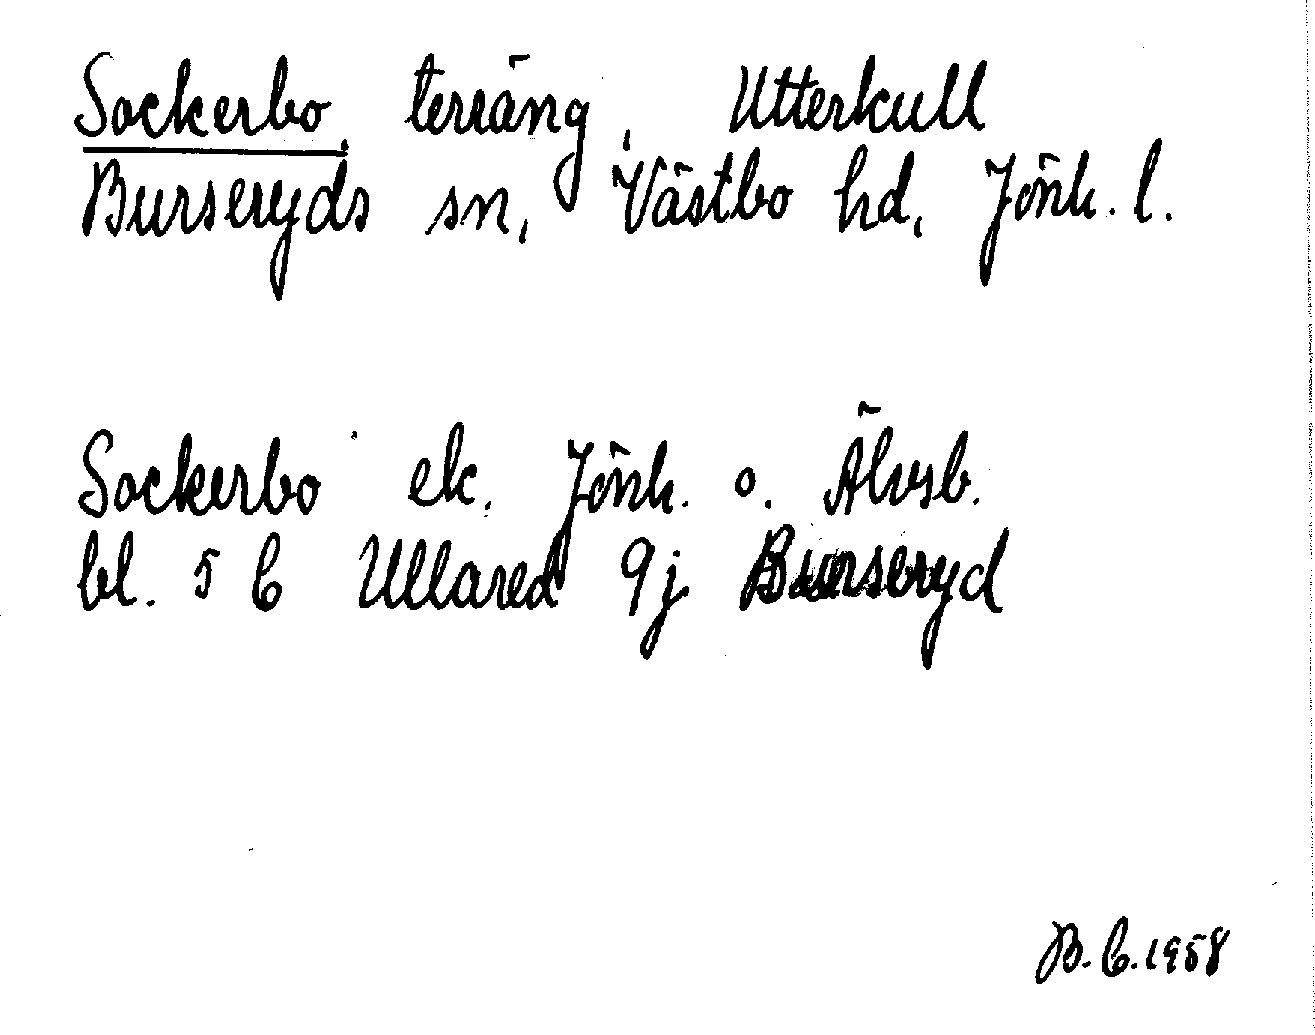 Sockerbo, terräng, Utterkull
Burseryds sn, Västbo hd, Jönk. l.
Sockerbo ek. Jönk. o. Älvsb.
bl. 5 C Ullared 9j Burseryd
B.C. 1958